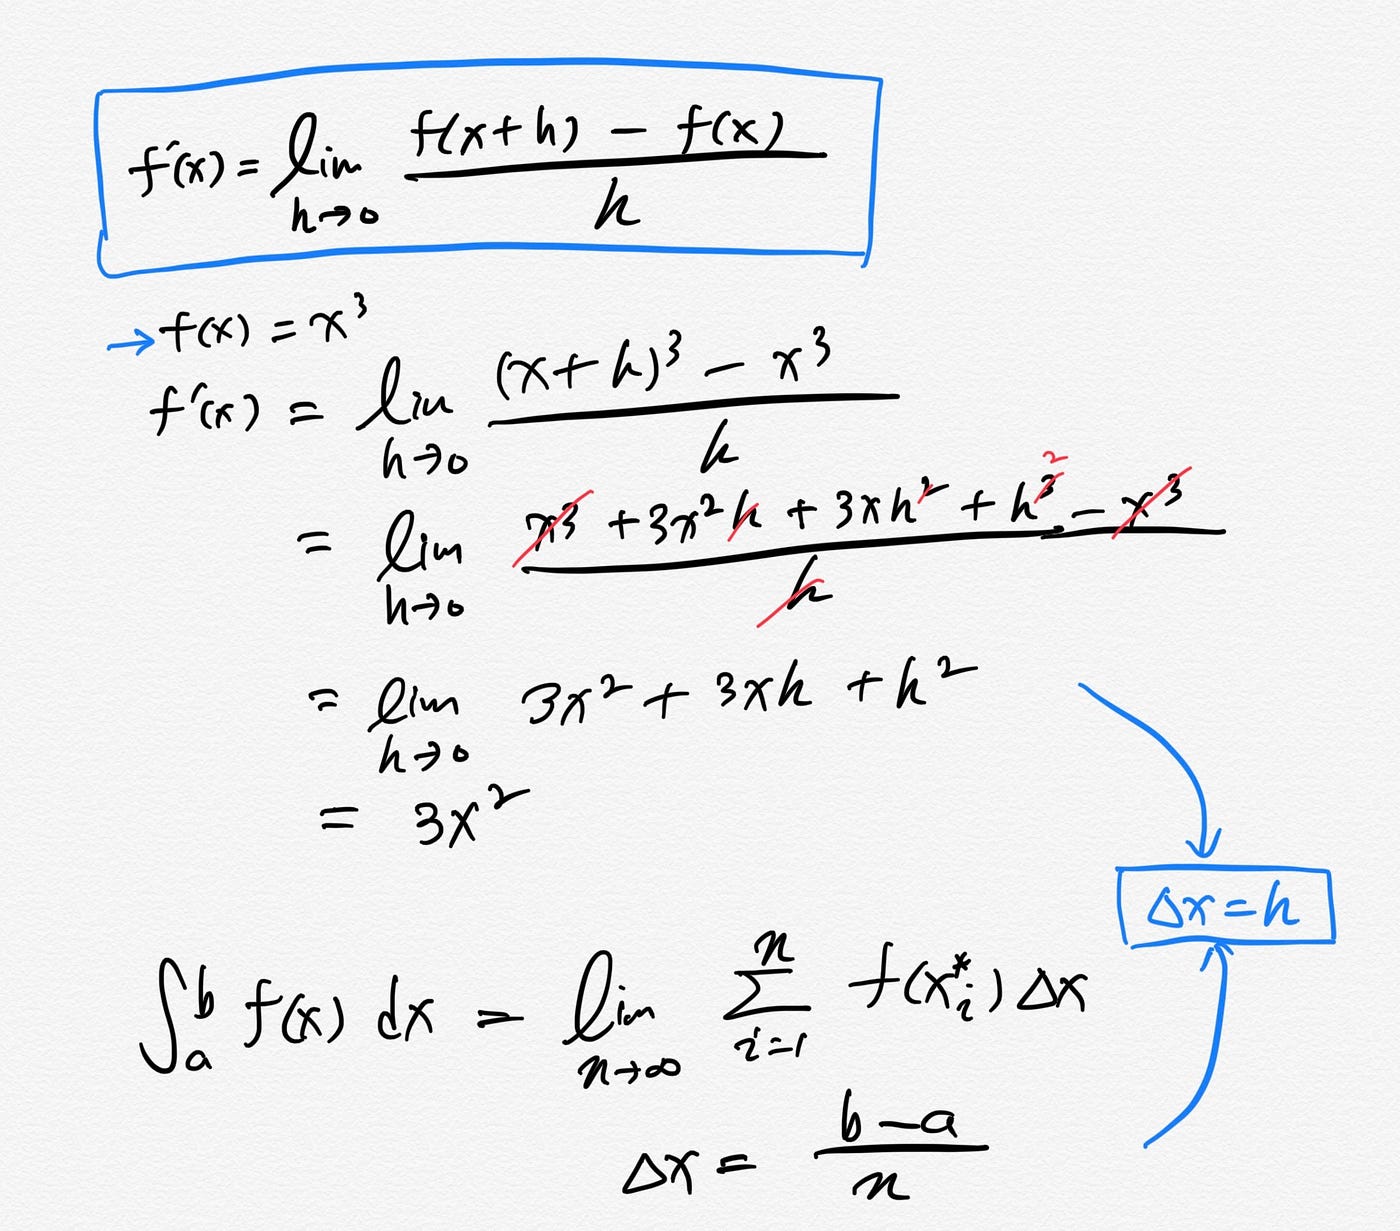 f'(x) = lim h→0 (f(x+h) - f(x)) / h
→ f(x) = x³
f'(x) = lim h→0 ((x+h)³ - x³) / h
= lim h→0 (x³ + 3x²h + 3xh² + h³ - x³) / h
2
= lim h→0 3x² + 3xh + h²
= 3x²
Δx = h
∫ₐᵇ f(x) dx = lim n→∞ Σ i=1 n f(xᵢ*) Δx
Δx = (b-a) / n